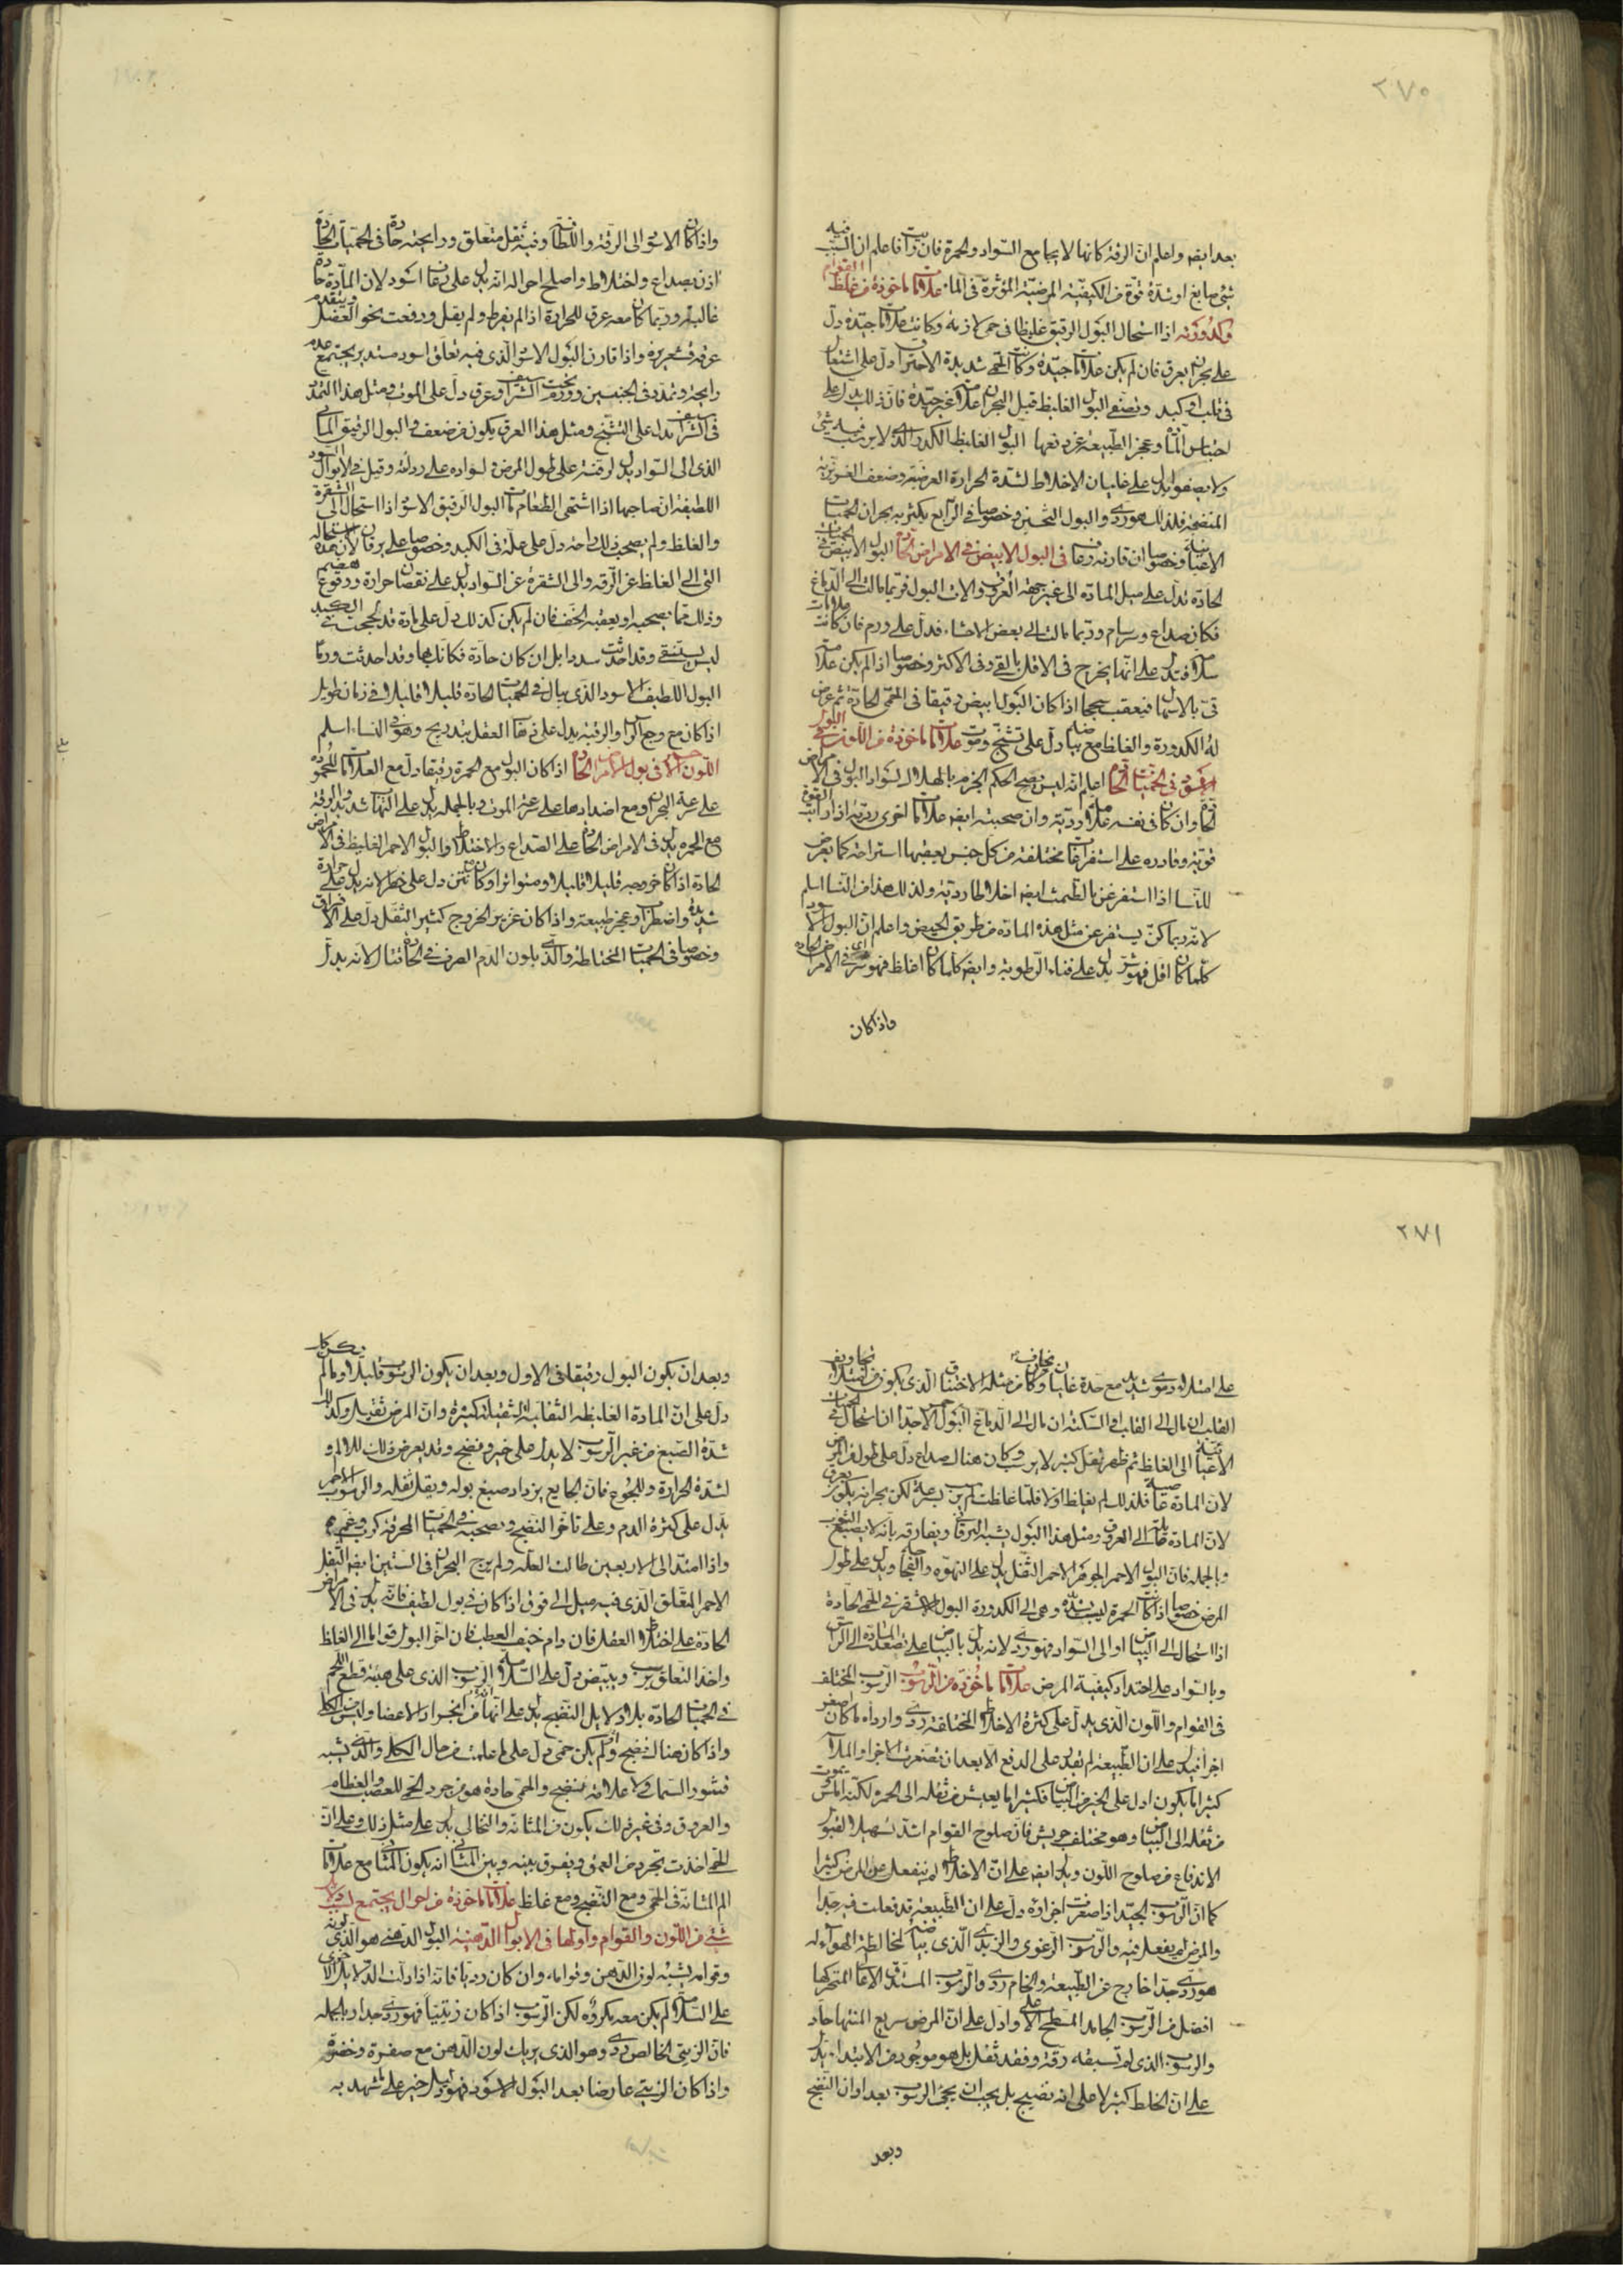 ٢٧٠
بعد ايضا واعلم ان الرقة كانها لا تجامع السواد والحمرة فان رأيت فاعلم ان السبب فيه
شئ صابغ او شدة قوة من الكيفية المرضية المؤثرة في الماء علامات ماخوذة من غلظ القوام
وكدورته اذا استحال البول الرقيق غليظا في حمى لازمة وكانت علامات جيدة دل
على بحران بعرق فان لم يكن علامات جيدة وكانت الحمى شديدة الاحتراق دل على اشتعال
في قلب او كبد وتصفى البول الغليظ قبل البحران علامة غير جيدة فان ذلك يدل على
احتباس المادة وعجز الطبيعة عن دفعها البول الغليظ الكدر الذي لا يرسب فيه شئ
ولا يصفو يدل على غليان الاخلاط لشدة الحرارة الغريبة وضعف الغريزية
المنضجة فلذلك هو ردى والبول الثخين وخصوصا في الرابع يكثر به بحران الحميات
الاعيائية وخصوصا ان قارنه رعاف في البول الابيض في الامراض الحادة البول الابيض في الحميات
الحادة يدل على ميل المادة الى غير جهة العروق والات البول فربما مالت الى الدماغ
فكان صداع وسرسام وربما مالت الى بعض الاحشاء فدل على ورم فان كانت علامات
سلامة فتدل على انها يخرج في الاقل بالقئ وفى الاكثر وخصوصا اذا لم يكن علامة
قئ بالاسهال فيعقب سحجا اذا كان البول ابيض رقيقا في الحمى الحادة ثم عرض
له الكدورة والغلظ مع بياضه دل على تشنج وموت علامات ماخوذة من اللون في البول
الاسود في الحميات الحادة اعلم انه ليس يصح الحكم الجزم بالهلاك لسواد البول في الامراض
الحادة وان كان في نفسه علامة ردية وان صحبته ايضا علامات اخرى ردية اذا رايت القوة
قوية وقادرة على استفراغات مختلفة من كل جنس يعقبها استراحة كما يعرض
للنساء اذا استفرغن بالطمث ايضا اخلاطا ردية ولذلك هذا من النساء اسلم
لانه ربما كن يستفرغن مثل هذه المادة من طريق الحيض واعلم ان البول الاسود
كلما كان اقل فهو شر يدل على فناء الرطوبة وايضا كلما كان اغلظ فهو شر في الامراض الحادة
واذا كان
واذا كان الاسود الى الرقة واللطافة وفيه ثقل متعلق ورايحته حادة في الحميات الحادة
انذر بصداع واختلاط واصلح احواله انه يدل على رعاف اسود لان المادة حادة
غالبة وربما كان معه عرق للحرارة اذا لم يفرط ولم يقل ودفعت نحو العضل ويتقدم
عرقه قشعريرة واذا قارن البول الاسود الذي فيه تعلق اسود مستدير مجتمع عدم
رايحة وتمدد في الجنبين وورم تحت الشراسيف وعرق دل على الموت ومثل هذا التمدد
في الشراسيف يدل على التشنج ومثل هذا العرق يكون من ضعف والبول الرقيق المائى
الذى الى السواد يدل لرقته على طول المرض ولسواده على رداءته وقيل في الابوال السود
اللطيفة ان صاحبها اذا اشتهى الطعام مات البول الرقيق الاسود اذا استحال الى الشقرة
والغلظ ولم يصحب ذلك راحة دل على علة في الكبد وخصوصا على يرقان لان هذه الاستحالة
التى الى الغلظ عن الرقة والى الشقرة عن السواد يدل على نقصان حرارة ووقوع هضم
وذلك مما يصحبه او يعقبه الخف فان لم يكن كذلك دل على مادة قد لحجت في الكبد
ليس يستنقى وقد احدثت سددا بل ان كان حادة فكانك بها وقد احدثت ورما
البول اللطيف الاسود الذي يبال في الحميات الحادة قليلا قليلا في زمان طويل
اذا كان مع وجع الراس والرقبة يدل على ذهاب العقل بتدريج وهو في النساء اسلم
اللون الاحمر في بول الامراض الحادة اذا كان البول مع الحمرة رقيقا دل مع العلامات المحمودة
على سرعة البحران ومع اضدادها على سرعة الموت وبالجملة يدل على التهاب شديد والرقة
مع الحمرة يدل في الامراض الحادة على الصداع والاختلاط والبول الاحمر الغليظ في الامراض
الحادة اذا كان خروجه قليلا قليلا ومتواترا وكان نتن دل على خطر لانه يدل على حرارة
شديدة واضطراب وعجز طبيعة واذا كان غزير الخروج كثير الثفل دل على الافراق
وخصوصا في الحميات المختلطة والذي بلون الدم الصرف في الحادة قتال لانه يدل
٢٧١
على امتلاء دموي شديد مع حدة غليان وكان من مثله الاختناق الذي يكون من امتلاء تجاويف
القلب ان مال الى القلب او السكتة ان مال الى الدماغ البول الاحمر جدا ان استحال في الحميات
الاعيائية الى الغلظ ثم ظهر ثفل كثير لا يرسب وكان هناك صداع دل على طول من المرض
لان المادة عاصية فلذلك لم يغلظ اولا فلما غلظت لم يرسب بسرعة لكن بحرانه يكون بعرق
لان المادة مائلة الى العروق ومثل هذا البول يشبه اليرقان ويفارقه بانه لا يصبغ الثوب
وبالجملة فان البول الاحمر الجوهر الاحمر الثفل يدل على التهوة والفجاجة ويدل على طول
المرض خصوصا اذا كانت الحمرة ليست بشديدة وهي الى الكدورة البول الاشقر في الحمى الحادة
اذا استحال الى البياض او الى السواد فهو ردى لانه يدل بالبياض على تصعد المادة الى الراس
وبالسواد على احتداد كيفية المرض علامات ماخوذة من الرسوب الرسوب المختلف
في القوام واللون الذي يدل على كثرة الاخلاط المختلفة ردى وارداه ما كان اصغر
اجزا فيدل على ان الطبيعة لم تقدر على الدفع الا بعد ان تصغرت الاجزا والملاسة
كثيرا ما يكون ادل على الخير من البياض فكثيرا ما يعيش من ثفله الى الحمرة لكنه املس ويموت
من ثفله الى البياض وهو مختلف جريش فان صلوح القوام اشد تسهيلا لقبول
الاندفاع من صلوح اللون ويدل ايضا على ان الاخلاط لم تنفعل عن المرض كثيرا
كما ان الرسوب الجيد اذا صغرت اجزاؤه دل على ان الطبيعة قد فعلت فيه جدا
والمرض لم يفعل فيه والرسوب الرغوى والزبدى الذي بياضه لمخالطة الهواء له
هو ردى جدا خارج عن الطبيعة والخام ردى والرسوب المستدق الاعلى المتحركها
افضل من الرسوب الجامد المسطح الاعلى وادل على ان المرض سريع المنتها حاد
والرسوب الذي لم تسبقه رقة وفقد ثفل بل هو موجود من الابتداء يدل
على ان الخلط كثير لا على انه نضيج بل يجب ان يجئ الرسوب بعد اوان النضج
وبعد
وبعد ان يكون البول رقيقا في الاول وبعد ان يكون الرسوب قليلا وما لم يكن كذلك
دل على ان المادة الغليظة الثفلية الثقيلة كثيرة وان المرض ثقيل وكذلك
شدة الصبغ من غير الرسوب لا يدل على خير ونضج وقد يعرض ذلك للالم و
لشدة الحرارة وللجوع فان الجايع يزداد صبغ بوله ويقل ثفله والرسوب الاحمر
يدل على كثرة الدم وعلى تاخر النضج ويصحبه في الحميات المحرقة كرب وغم
واذا امتد الى الاربعين طالت العلة ولم يرج البحران في الستين ايضا الثفل
الاحمر المتعلق الذي فيه ميل الى فوق اذا كان في بول لطيف فانه يدل في الامراض
الحادة على اختلاط العقل فان دام خيف العطب فان اخذ البول قواما الى الغلظ
واخذ التعلق يرسب ويبيض دل على السلامة الرسوب الذي على هيئة قطع اللحم
في الحميات الحادة بلا دلايل النضج يدل على انها من انجراد الاعضا وليس من الكلى
واذا كان هناك نضج ولم يكن حمى دل على ما علمت من حال الكلى والذي يشبه
قشور السمك ولا علامة نضج والحمى حادة هو من جرد الحمى للعصب والعظام
والعروق وفى غير ذلك يكون من المثانة والنخالى يدل على مثل ذلك وعلى ان
الحمى اخذت تجرد من العمق ويفرق بينه وبين المثانى انه يكون المثانى مع علامات
الم المثانة في الحمى ومع النضج ومع غلظ علامات ماخوذة من احوال يجتمع لسبب ولاسباب
شتى من اللون والقوام واولها في الابوال الدهنية البول الدهنى هو الذي لونه
وقوامه يشبه لون الدهن وقوامه وان كان رديا فانه اذا دلت الدلايل الاخرى
على السلامة لم يكن معه مكروه لكن الرسوب اذا كان زيتيا فهو ردى جدا وبالجملة
فان الزيتى الخالص ردى وهو الذي يريك لون الدهن مع صفرة وخضرة
واذا كان الزيتى عارضا بعد البول الاسود فهو دليل خير على ما شهد به